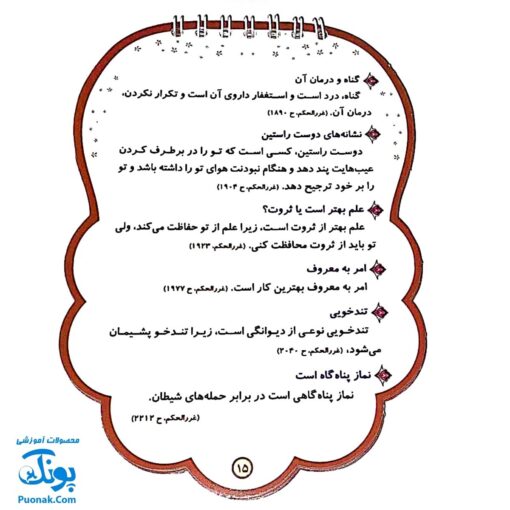 گناه و درمان آن
گناه، درد است و استغفار داروی آن است و تکرار نکردن،
درمان آن. (غررالحکم، ح ۱۸۹۰)
نشانه‌های دوست راستین
دوست راستین، کسی است که تو را در برطرف کردن
عیب‌هایت پند دهد و هنگام نبودنت هوای تو را داشته باشد و تو
را بر خود ترجیح دهد. (غررالحکم، ح ۱۹۰۴)
علم بهتر است یا ثروت؟
علم بهتر از ثروت است، زیرا علم از تو حفاظت می‌کند، ولی
تو باید از ثروت محافظت کنی. (غررالحکم، ح ۱۹۲۳)
امر به معروف
امر به معروف بهترین کار است. (غررالحکم، ح ۱۹۷۷)
تندخویی
تندخویی نوعی از دیوانگی است، زیرا تندخو پشیمان
می‌شود، (غررالحکم، ح ۲۰۴۰)
نماز پناه‌گاه است
نماز پناه‌گاهی است در برابر حمله‌های شیطان.
(غررالحکم، ح ۲۲۱۲)
۱۵
محصولات آموزشی
پونک
Puonak.Com